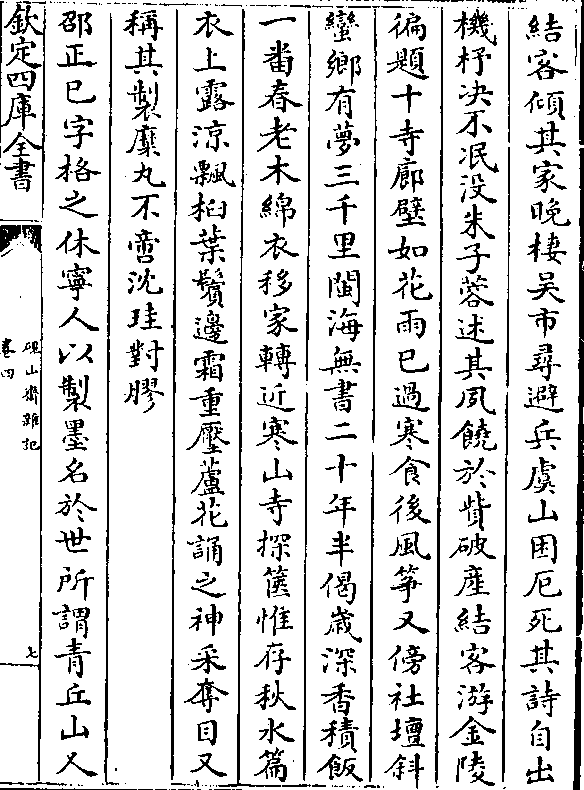 結客傾其家晚棲吴市尋避兵虞山困厄死其詩自出
機杼决不泯没朱子蓉述其夙饒於貲破産結客游金陵
徧題十寺廊壁如花雨已過寒食後風筝又傍社壇斜
蠻鄉有夢三千里閩海無書二十年半偈歲深香積飯
一番春老木綿衣移家轉近寒山寺探篋惟存秋水篇
衣上露凉飄桕葉鬢邊霜重壓蘆花誦之神采奪目又
稱其製糜丸不啻沈珪對膠
邵正已字格之休寧人以製墨名於世所謂青丘山人
欽定四庫全書
硯山齋雜記
卷四
七